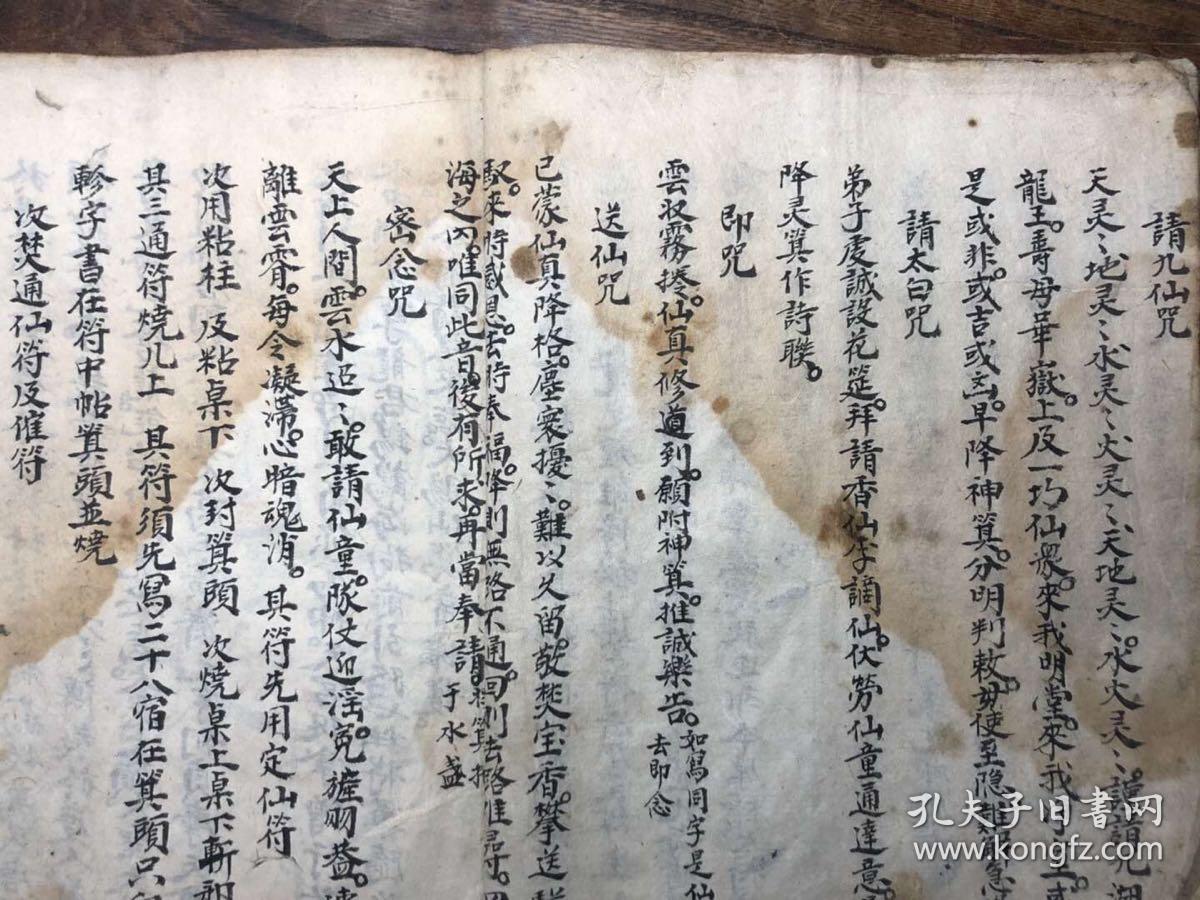 請九仙咒
天灵〻地灵〻水灵〻火灵〻天地灵〻水火灵〻謹請九湖
龍王。壽母華嶽。上及一巧仙眾。來我明堂。來我
是或非。或吉或凶。早降神箕。分明判敕。
請太白咒
弟子虔誠設花筵。拜請香仙李謫仙。伏勞仙童通達意。
降灵箕作詩聯。
即咒
雲収霧捲。仙真修道到。願附神箕。推誠樂告。如寫同字是仙
去即念
送仙咒
已蒙仙真降格。塵寰擾〻。難以久留。敬焚宝香。攀送
馭。來時感恩。去時奉福。降則無路不通。回則去路惟尋。
海之內。唯同此音。後有所求。再當奉請
于水盞
密念咒
天上人間。雲水迢〻。敢請仙童。隊仗迎
離雲霄。每令凝滯。心暗魂消。其符先用定仙符
次用粘柱 及粘桌下 次封箕頭 次燒桌上桌下斬
其三通符燒几上 其符須先寫二十八宿在箕頭只
軫字書在符中帖箕頭並燒
次焚通仙符及催符
孔夫子旧書网
www.kongfz.com